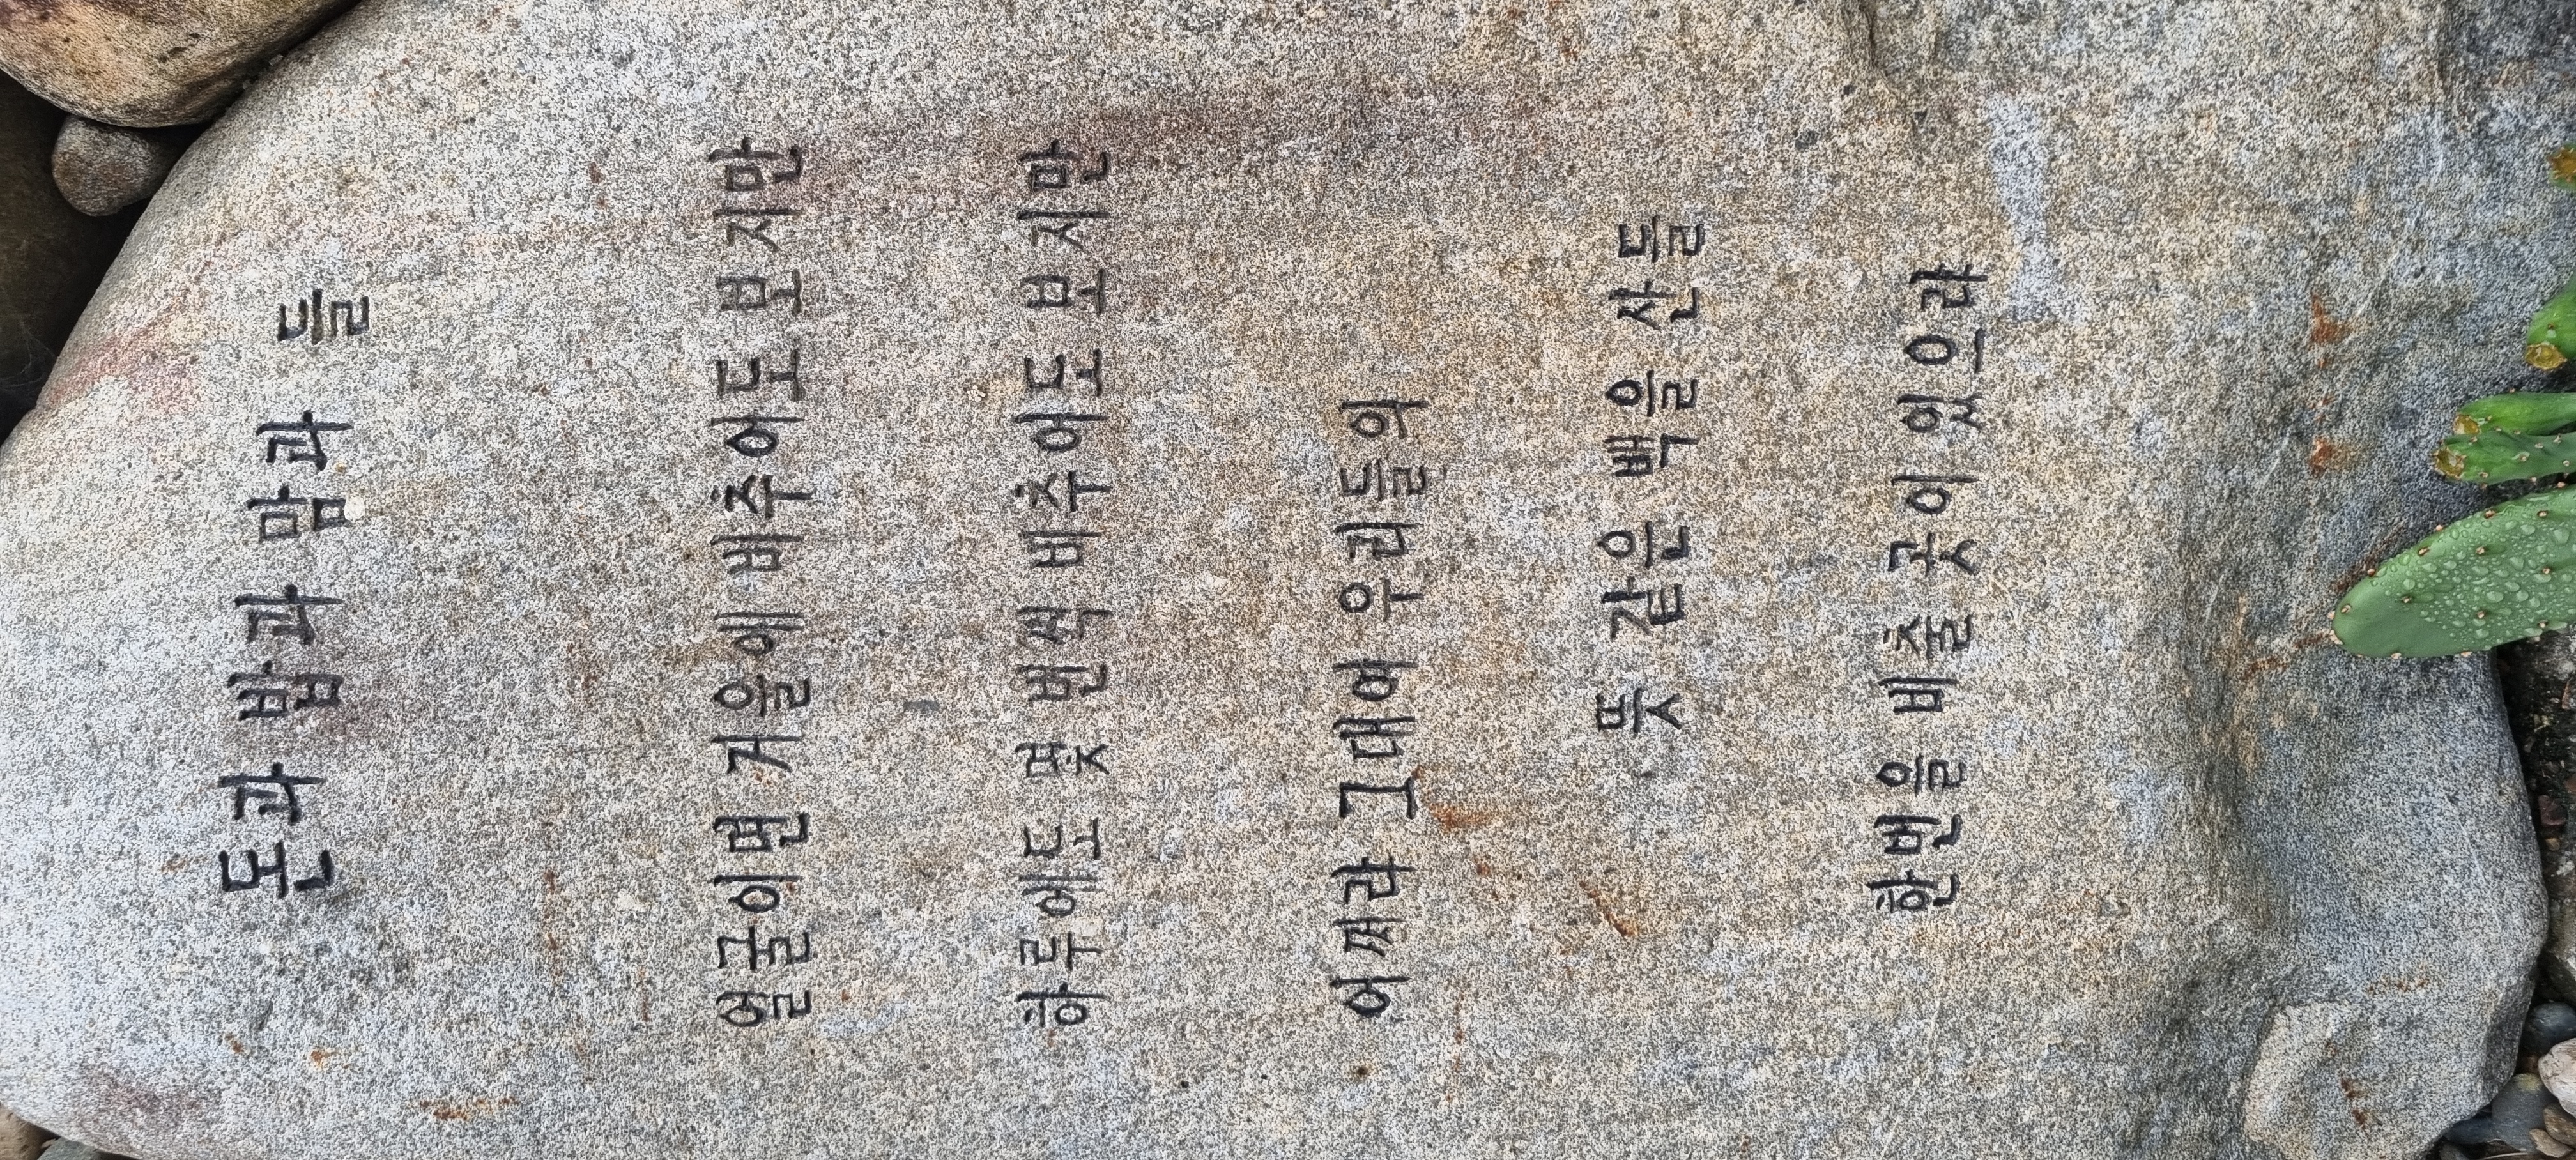 돈과 밥과 맘과 들
얼굴이면 거울에 비추어도 보지만
하루에도 몇 번씩 비추어도 보지만
어쩌랴 그대여 우리들의
뜻 같은 백을 산들
한번을 비출 곳이 있으랴